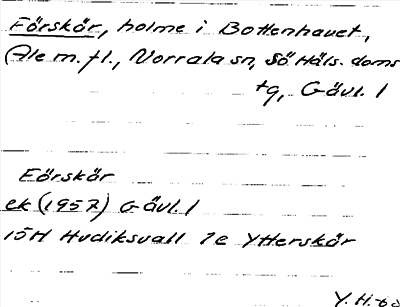 Förskär, holme i Bottenhavet,
(Ale m. fl., Norrala sn, Sö Häls. doms
tg, Gävl. l
Förskär
ek (1957) Gävl. l
15H Hudiksvall 1e Ytterskär
Y. H.-60